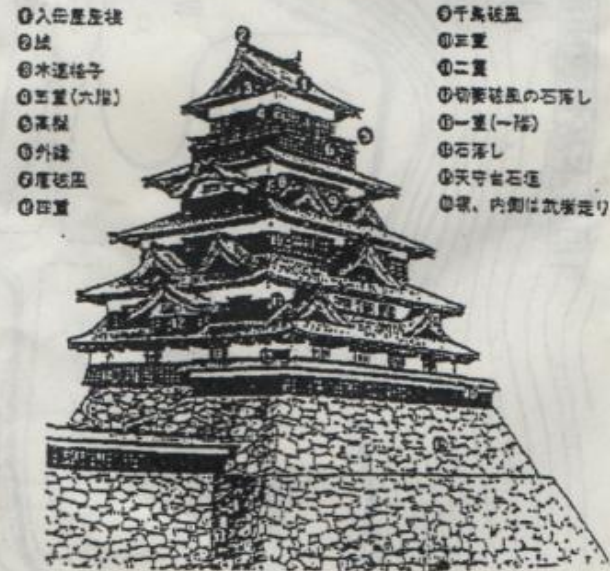 ❶入母屋屋根
❷鯱
❸木連格子
❹五重(六階)
❺高欄
❻外縁
❼唐破風
❽四重
❾千鳥破風
❿三重
⓫二重
⓬切妻破風の石落し
⓭一重(一階)
⓮石落し
⓯天守台石垣
塀、内側は武者走り